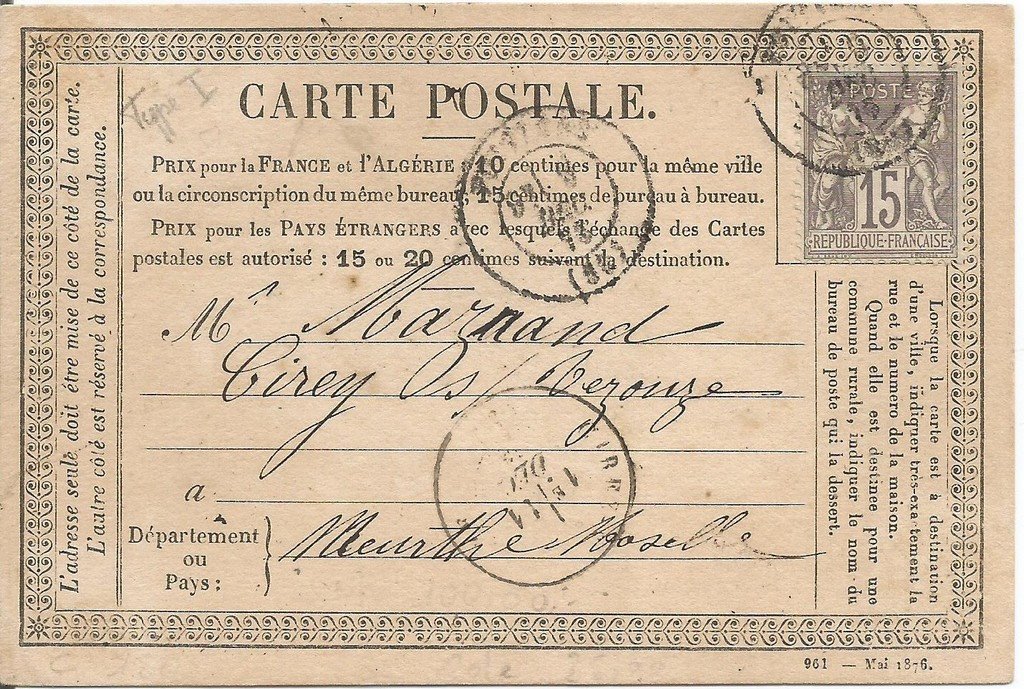 Type I
CARTE POSTALE.
POSTE
15
REPUBLIQUE-FRANÇAISE
PRIX pour la FRANCE et l'ALGÉRIE : 10 centimes pour la même ville
ou la circonscription du même bureau, 15 centimes de bureau à bureau.
PRIX pour les PAYS ÉTRANGERS avec lesquels l'échange des Cartes
postales est autorisé : 15 ou 20 centimes suivant la destination.
Mr Marnand
Cirey s/ Vezouze
a
Département
ou
Pays :
Meurthe Moselle
L'adresse seule doit être mise de ce côté de la carte.
L'autre côté est réservé à la correspondance.
Lorsque la carte est à destination
d'une ville, indiquer très-exactement la
rue et le numero de la maison.
Quand elle est destinee pour une
commune rurale, indiquer le nom du
bureau de poste qui la dessert.
DEC
961 — Mai 1876.